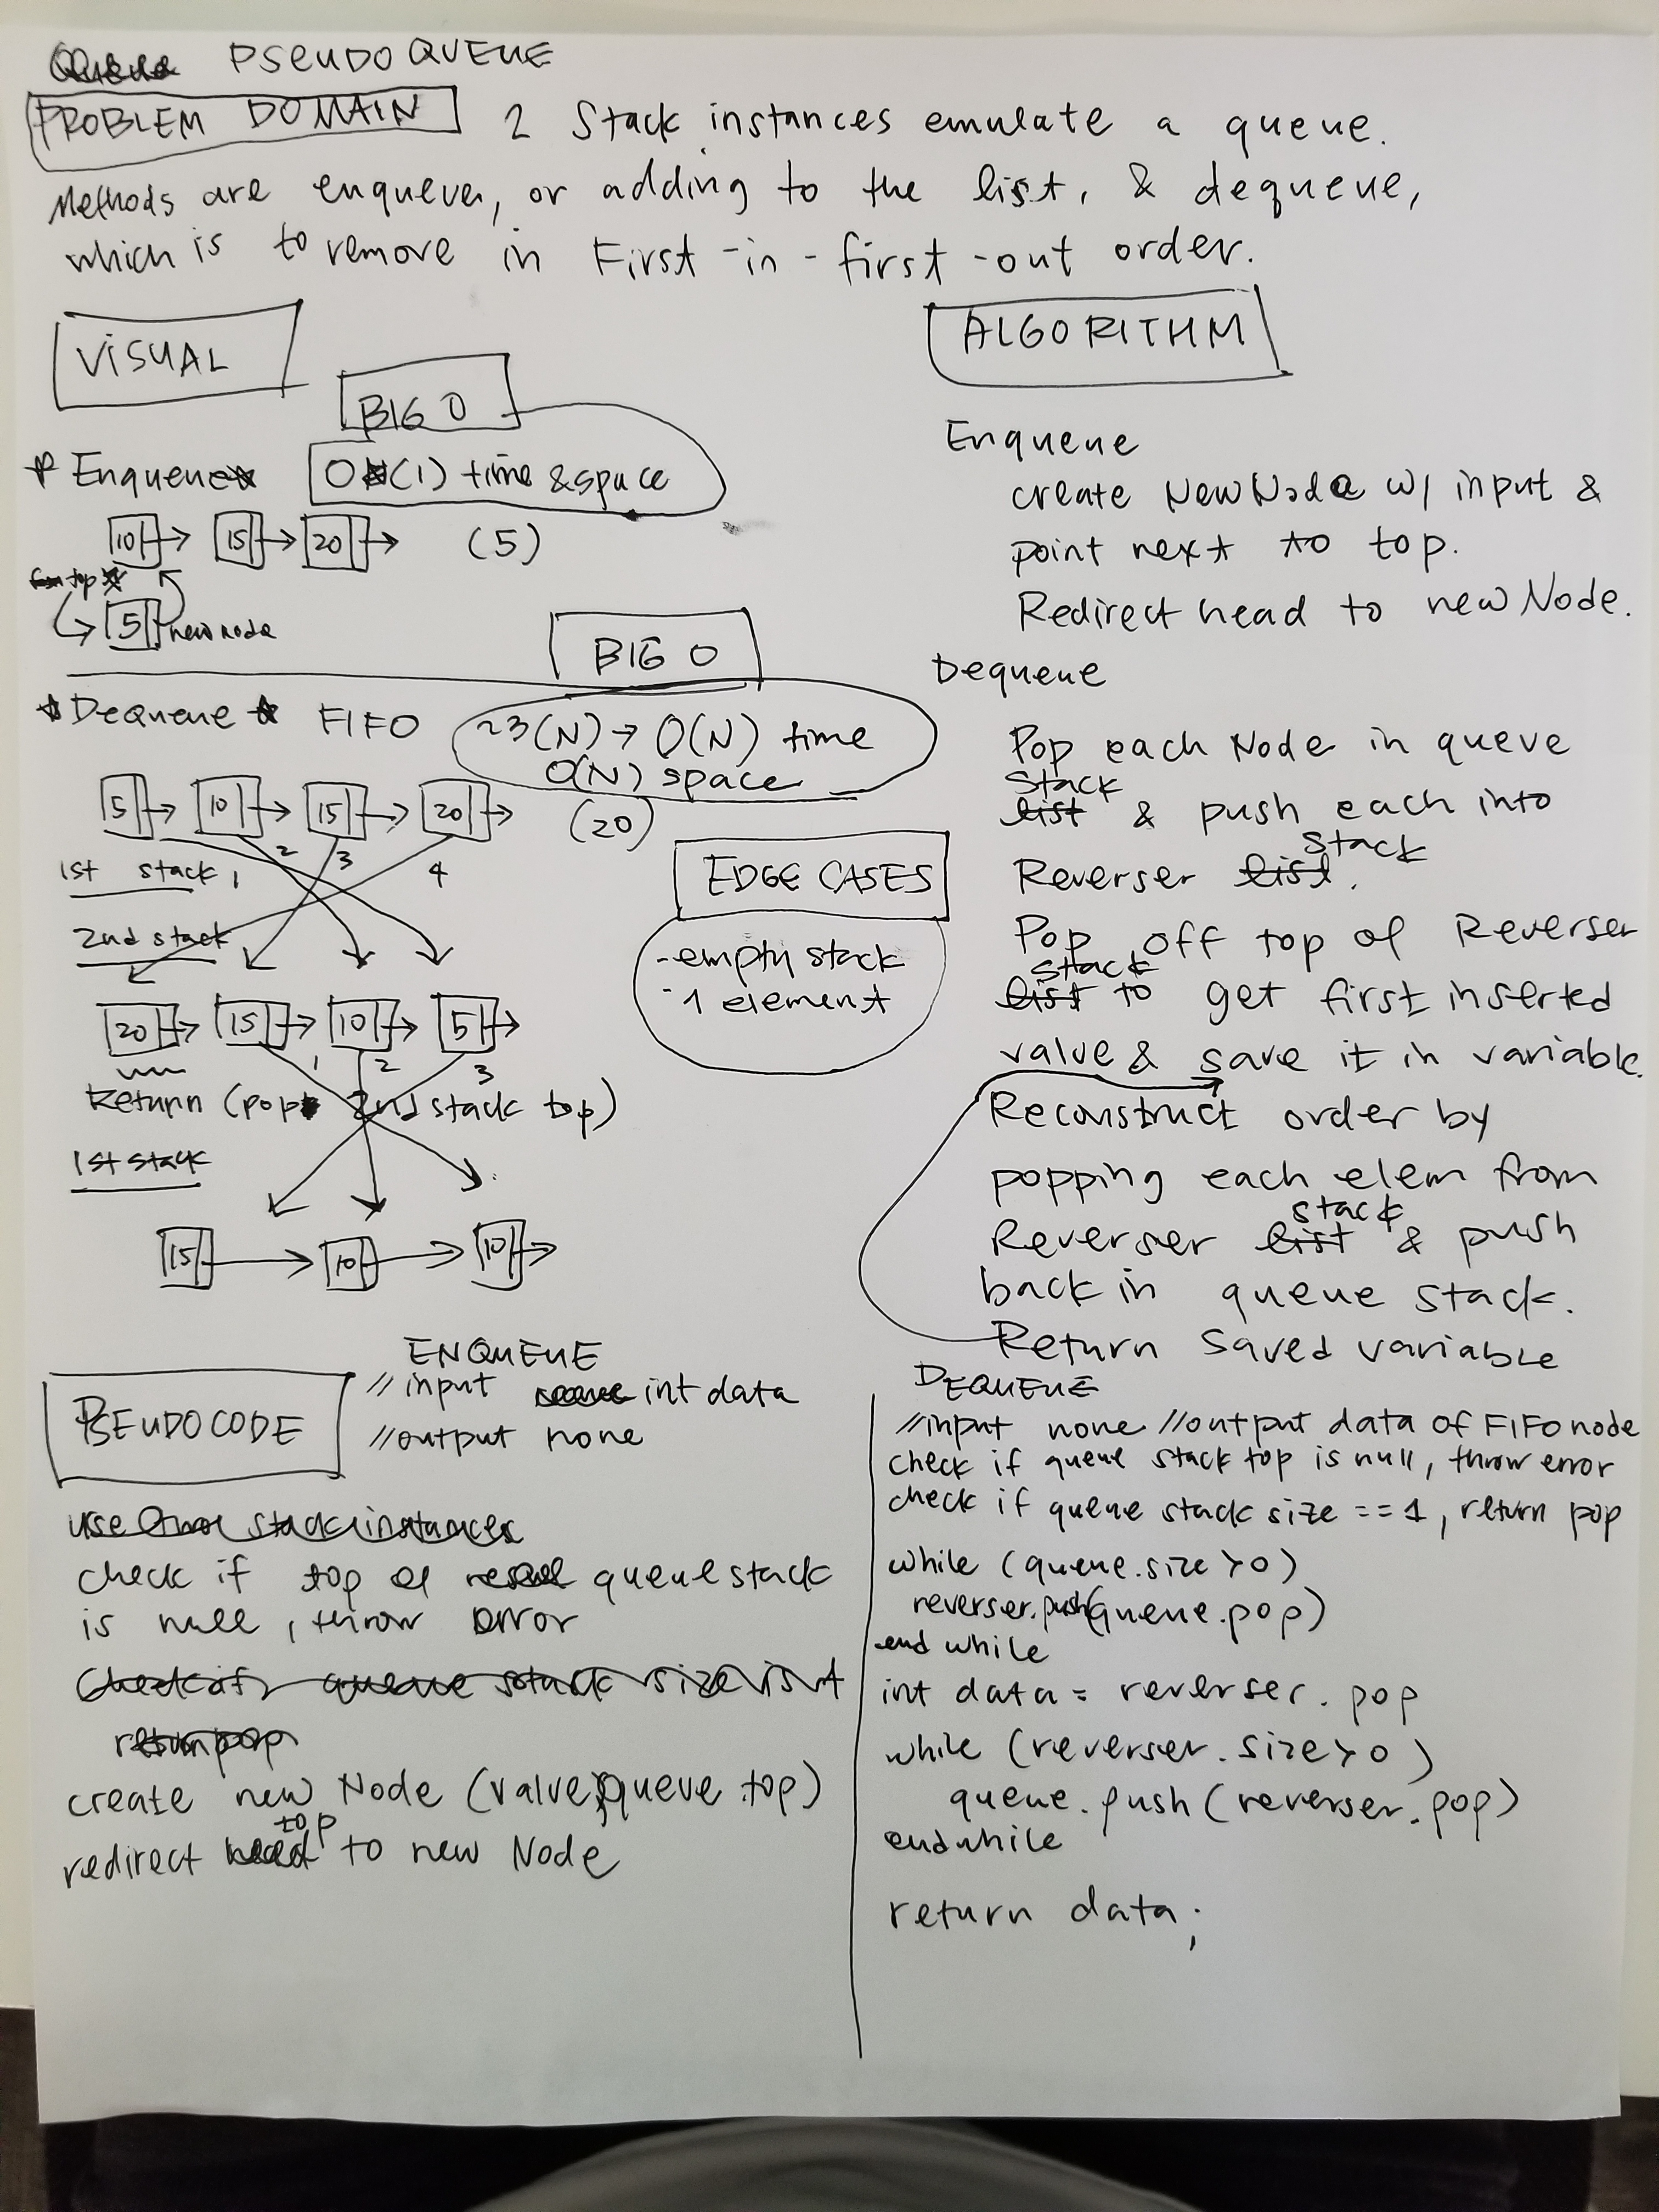 Queue PSEUDOQUEUE
PROBLEM DOMAIN 2 Stack instances emulate a queue.
Methods are enqueue, or adding to the list, & dequeue,
which is to remove in First-in-first-out order.
VISUAL
BIG O
* Enqueue * O(1) time & space
10 15 20 (5)
top
5 new node
BIG O
* Dequeue * FIFO ~3(N) → O(N) time
O(N) space
5 10 15 20 (20)
1st stack 1 2 3 4
2nd stack
20 15 10 5
1 2 3
Return (pop 2nd stack top)
1st stack
15 10 10
EDGE CASES
- empty stack
- 1 element
ALGORITHM
Enqueue
create NewNode w/ input &
point next to top.
Redirect head to new Node.
Dequeue
Pop each Node in queue
stack
list & push each into
stack
Reverser list.
Pop off top of Reverser
stack
list to get first inserted
value & save it in variable.
Reconstruct order by
popping each elem from
stack
Reverser list & push
back in queue stack.
Return saved variable
PSEUDOCODE
ENQUEUE
// input int data
// output none
use stack instances
check if top of queue stack
is null, throw error
Check if queue stack size is 1
return pop
create new Node (value, queue.top)
top
redirect head to new Node
DEQUEUE
// input none // output data of FIFO node
check if queue stack top is null, throw error
check if queue stack size == 1, return pop
while (queue.size > 0)
reverser.push(queue.pop)
end while
int data = reverser.pop
while (reverser.size > 0)
queue.push(reverser.pop)
end while
return data;